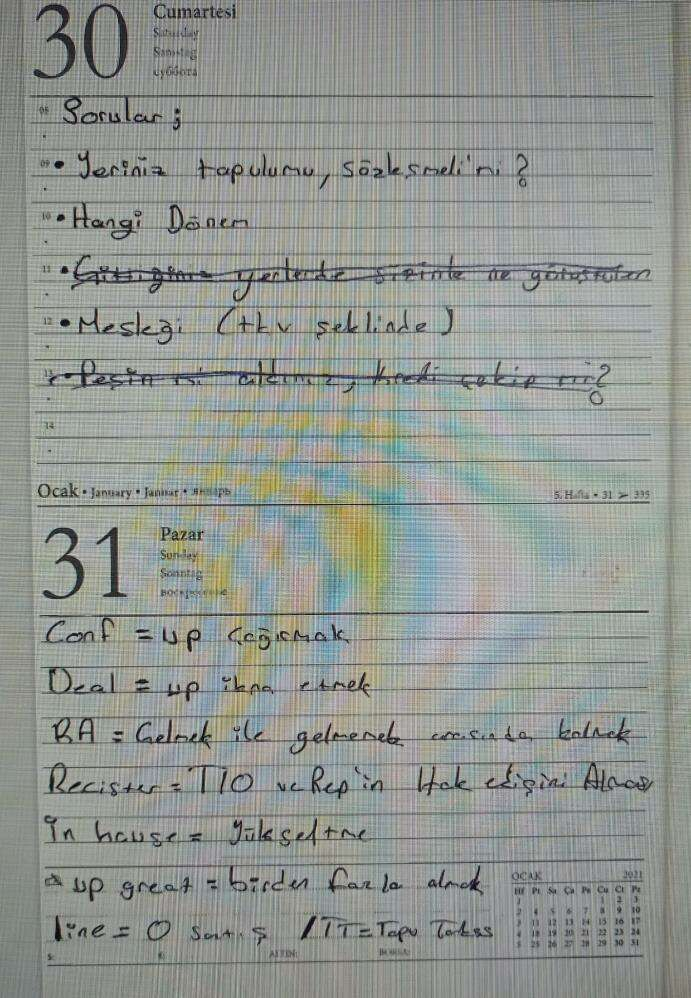 30 Cumartesi
Saturday
Samstag
суббота
08 Sorular;
09 • Yeriniz tapulumu, sözleşmeli'mi?
10 • Hangi Dönem
11 • yerlerde sizinle ne
12 • Mesleği (tkv şeklinde)
13 • Peşin mi aldınız, kredi çekip mi?
14
Ocak • January • Januar • январь 5. Hafta • 31 > 335
31 Pazar
Sunday
Sonntag
воскресенье
Conf = up Çağırmak
Deal = up ikna etmek
BA = Gelmek ile gelmemek arasında kalmak
Recister = TIO ve Rep'in Hak edişini Alması
İn hause = Yükseltme
up great = birden fazla almak
line = 0 satış / TT = Tapu Takas
OCAK 2021
Hf Pt Sa Ça Pe Cu Ct Pz
1 1 2 3
2 4 5 6 7 8 9 10
3 11 12 13 14 15 16 17
4 18 19 20 21 22 23 24
5 25 26 27 28 29 30 31
$: €: ALTIN: BORSA: